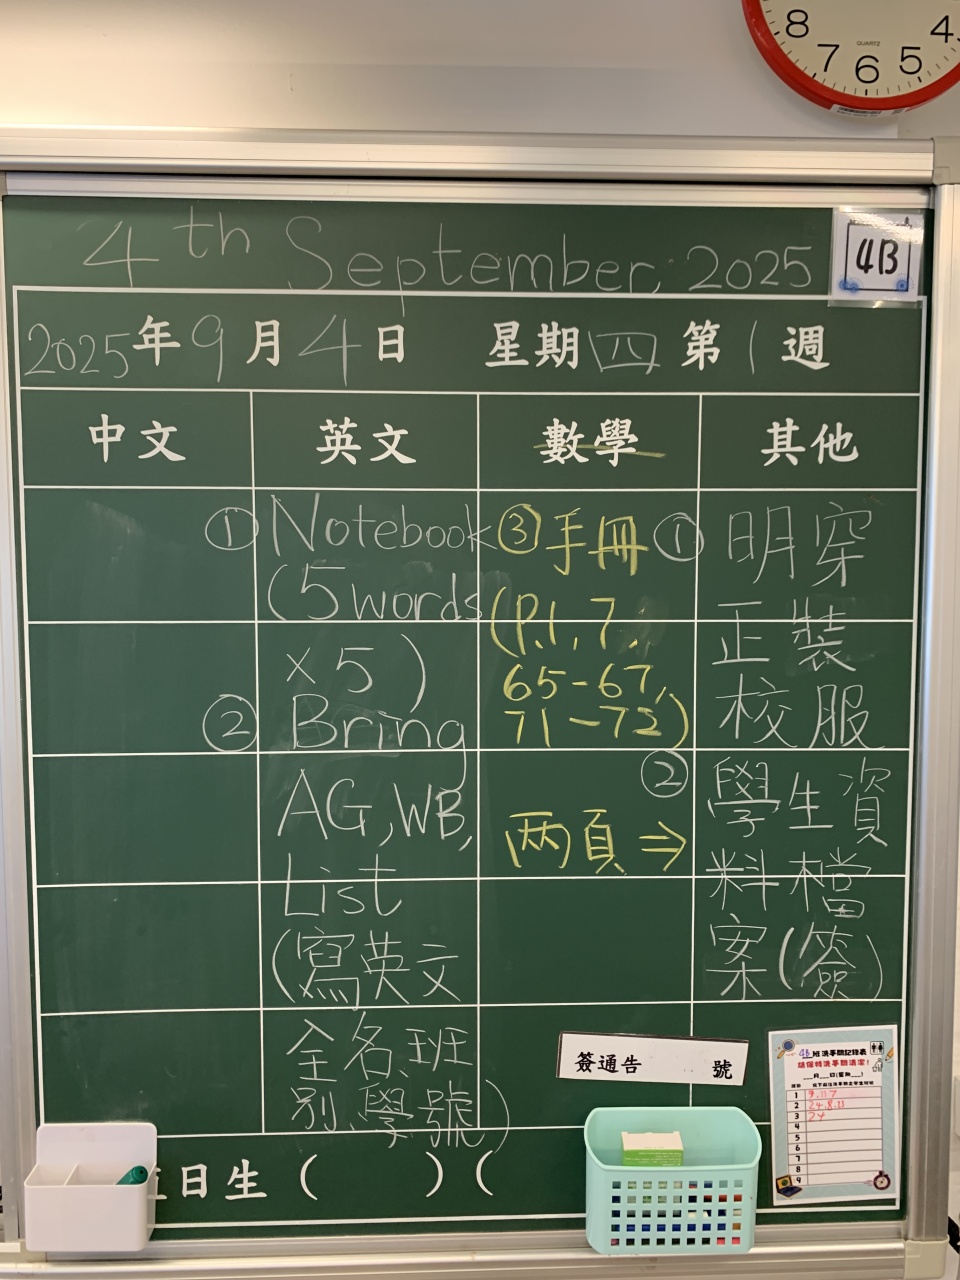 8 7 6 5 4
QUARTZ
4th September, 2025
4B
2025年9月4日 星期四 第1週
中文 英文 數學 其他
① Notebook
(5 words
x5)
② Bring
AG, WB,
List
(寫英文
全名、班
別、學號)
③ 手冊
(P.1, 7,
65-67,
71-72)
两頁 ⇒
① 明穿
正裝
校服
② 學生資
料檔
案(簽)
簽通告 號
4B班洗手間記錄表
請保持洗手間清潔!
月 日(星期 )
1 9, 11, 7
2 24, 8, 13
3 24
4
5
6
7
8
9
日生 ( ) (